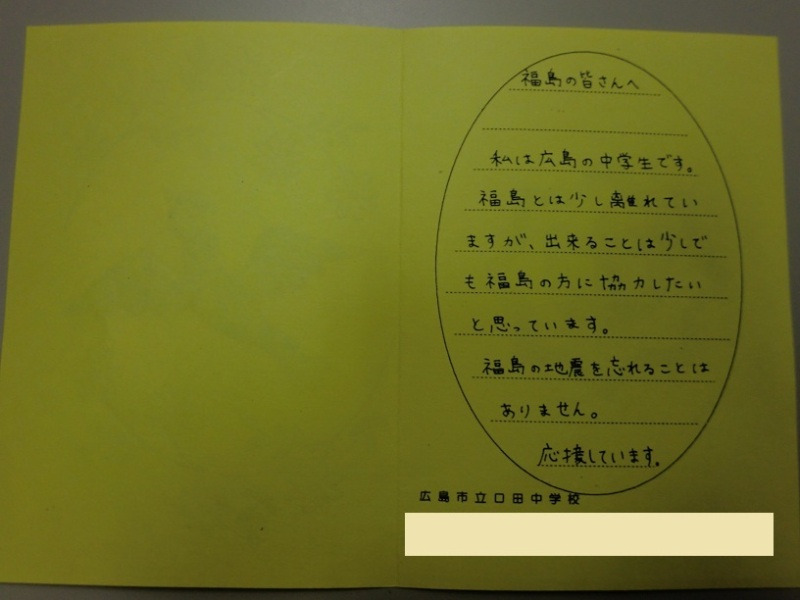 福島の皆さんへ
私は広島の中学生です。
福島とは少し離れてい
ますが、出来ることは少しで
も福島の方に協力したい
と思っています。
福島の地震を忘れることは
ありません。
応援しています。
広島市立口田中学校